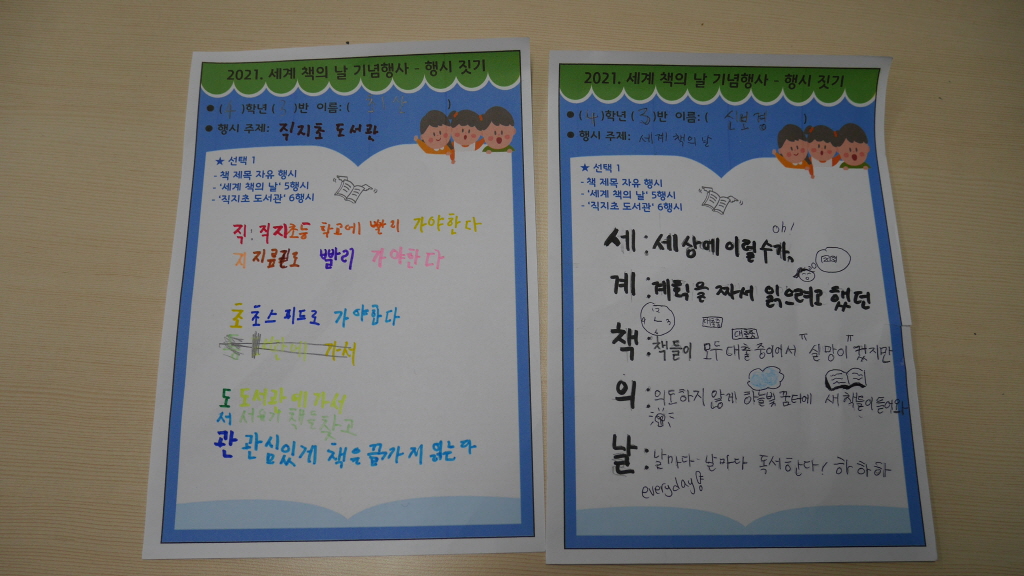 2021. 세계 책의 날 기념행사 - 행시 짓기
● (4)학년 ( )반 이름: ( )
● 행시 주제: 직지초 도서관
★ 선택 1
- 책 제목 자유 행시
- '세계 책의 날' 5행시
- '직지초 도서관' 6행시
직: 직지초등 학교에 빨리 가야한다
지 지금권도 빨리 가야한다
초 초스피드로 가야한다
도 도서관에 가서
서 서유기 책을 찾고
관 관심있게 책을 끝까지 읽는다
2021. 세계 책의 날 기념행사 - 행시 짓기
● (4)학년 (3)반 이름: ( 보경 )
● 행시 주제: 세계 책의 날
★ 선택 1
- 책 제목 자유 행시
- '세계 책의 날' 5행시
- '직지초 도서관' 6행시
oh!
세: 세상에 이럴수가,
계: 계획을 짜서 읽으려고 했던
대출중
책: 책들이 모두 대출 중이어서 "실망이" 컸지만
의: 의도하지 않게 하늘빛 꿈터에 새 책들이 들어와
날: 날마다 날마다 독서한다! 하 하 하
everyday